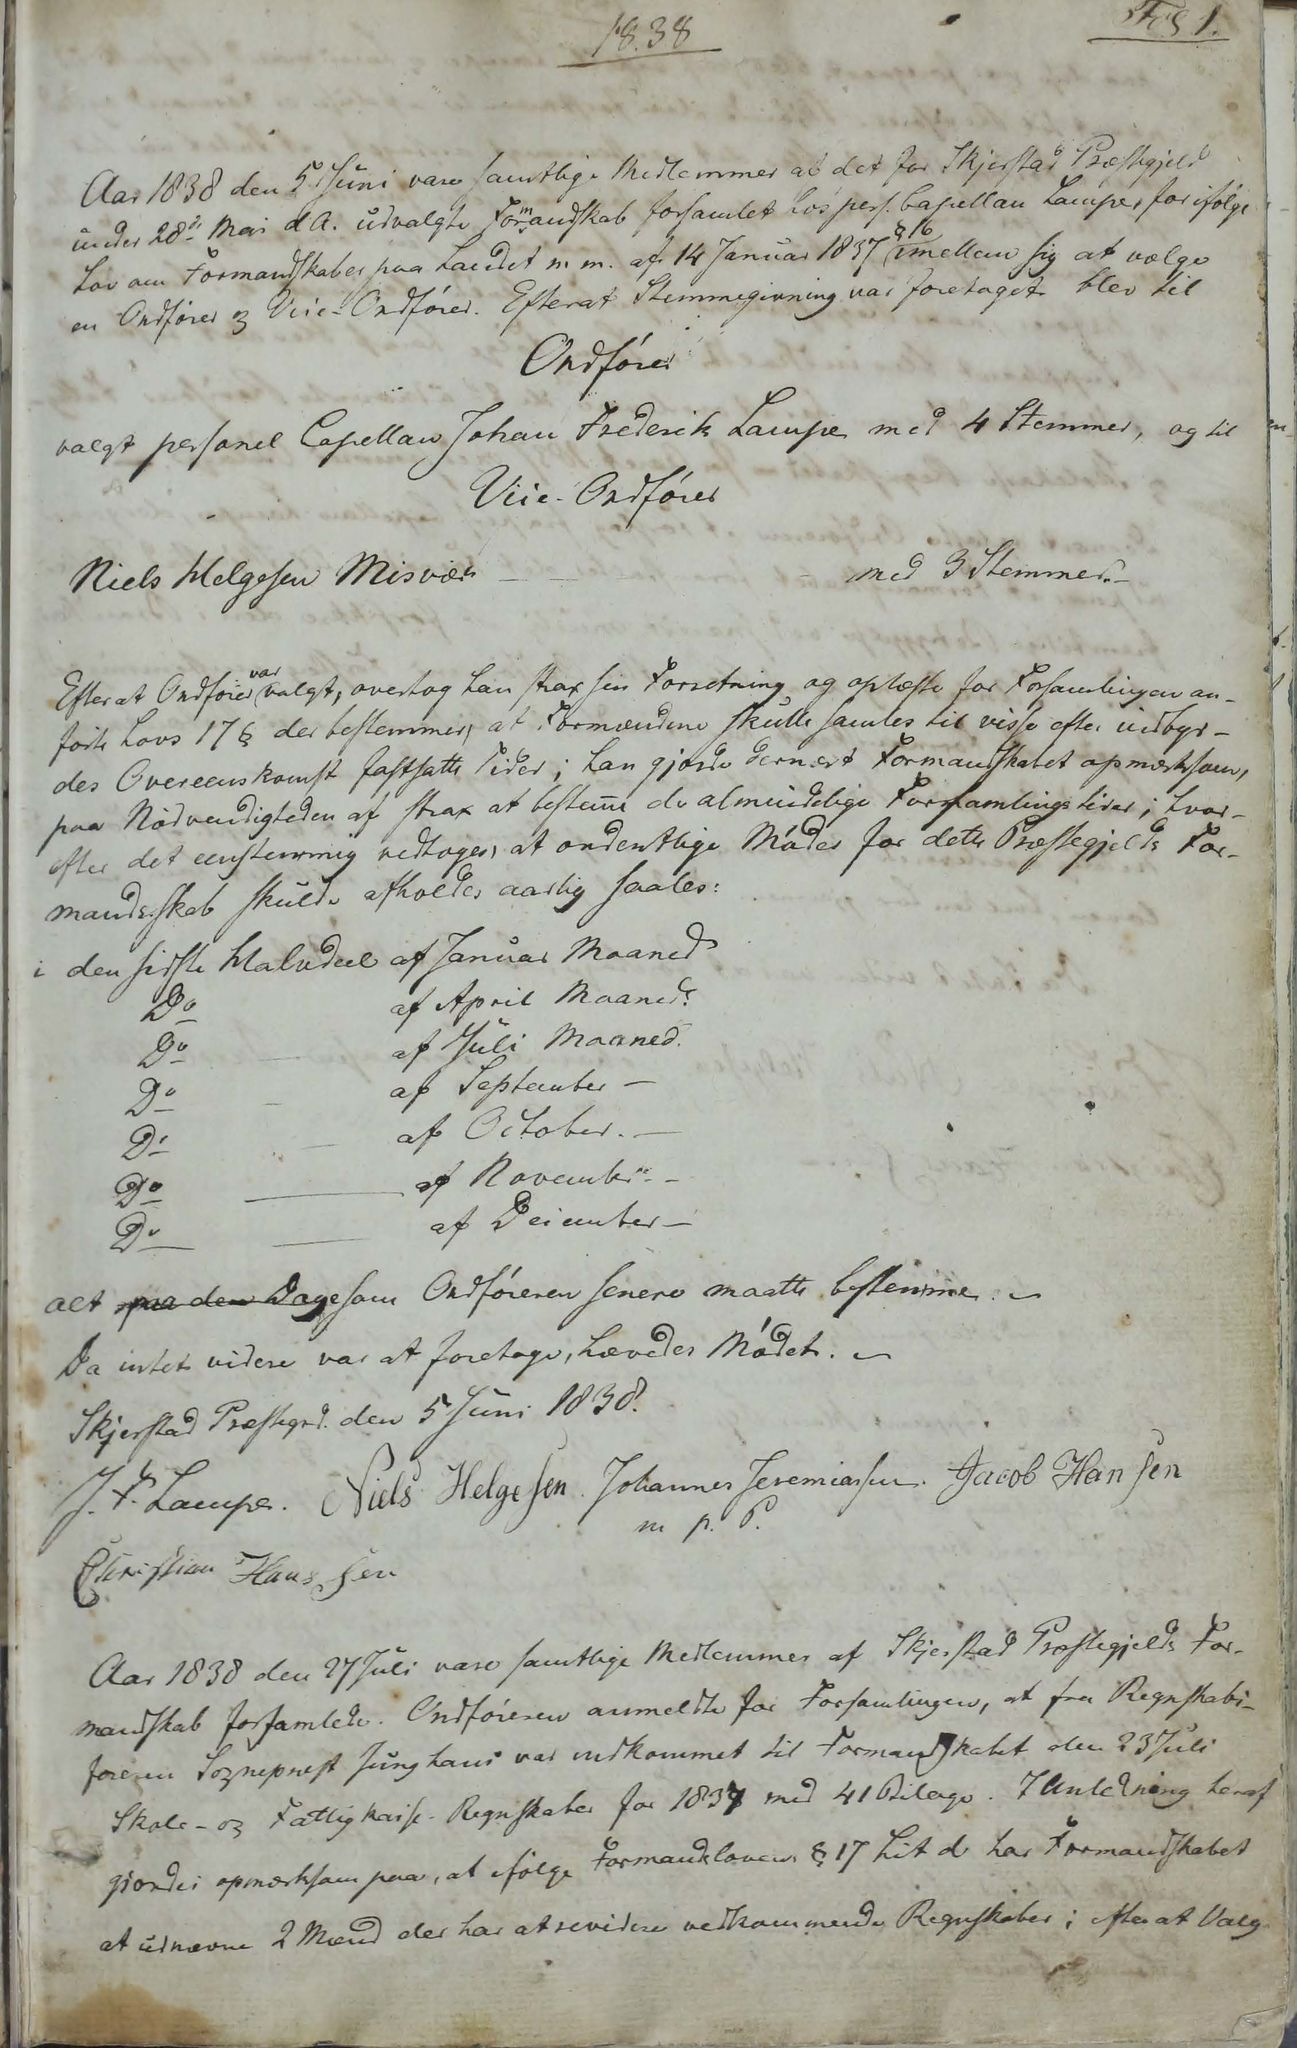 1838
Fol 1.
Aar 1838 den 5 Juni vare samtlige Medlemmer af det for Skjerstad Præstegjeld
under 28de Mai d. A. udvalgte Formandskab forsamlet hos pers. Capellan Lampe, for ifölge
Lov om Formandskaber paa Landet m. m. af 14 Januar 1837 § 16 imellem sig at vælge
en Ordförer og Vice-Ordförer. Efterat Stemmegivning var foretaget blev til
Ordförer
valgt personel Capellan Johan Frederik Lampe med 4 Stemmer, og til
Vice-Ordförer
Niels Helgesen Misvær - - - - med 3 Stemmer.-
Efterat Ordförer var valgt, overtog han strax sin Forretning og oplæste for Forsamlingen an-
förte Lovs 17 § der bestemmer, at Formændene skulle samles til visse efter indbyr-
des Overeenskomst fastsatte Tider; han gjorde dernæst Formandskabet opmærksom,
paa Nödvendigheden af strax at bestemme de almindelige Forsamlingstider; hvor-
efter det eenstemmig vedtoges, at ordentlige Möder for dette Præstegjelds For-
mandsskab skulde afholdes aarlig saales:
i den sidste Halvdeel af Januar Maaned
Do af April Maaned.
Do - af Juli Maaned.
Do - af September -
Do - af October. -
Do - af November. -
Do - af December -
alt paa den Dage som Ordföreren senere maatte bestemme.
Da intet videre var at foretage, hævedes Mödet.
Skjerstad Præstegrd. den 5 Juni 1838.
J. F. Lampe. Niels Helgesen. Johannes Jeremiassen. Jacob Hansen
m. p. P.
Christian Hanssen
Aar 1838 den 27 Juli vare samtlige Medlemmer af Skjerstad Præstegjelds For-
mandskab forsamlede. Ordföreren anmeldte for Forsamlingen, at fra Regnskabs-
föreren Sognepræst Junghans var indkommet til Formandskabet den 23 Juli
Skole- og Fattigkasse-Regnskaber for 1837 med 41 Bilage. I Anledning heraf
gjordes opmærksom paa, at ifölge Formandsloven § 17 Lit d har Formandskabet
at udnævne 2 Mænd der har at revidere vedkommende Regnskaber; efterat Valg